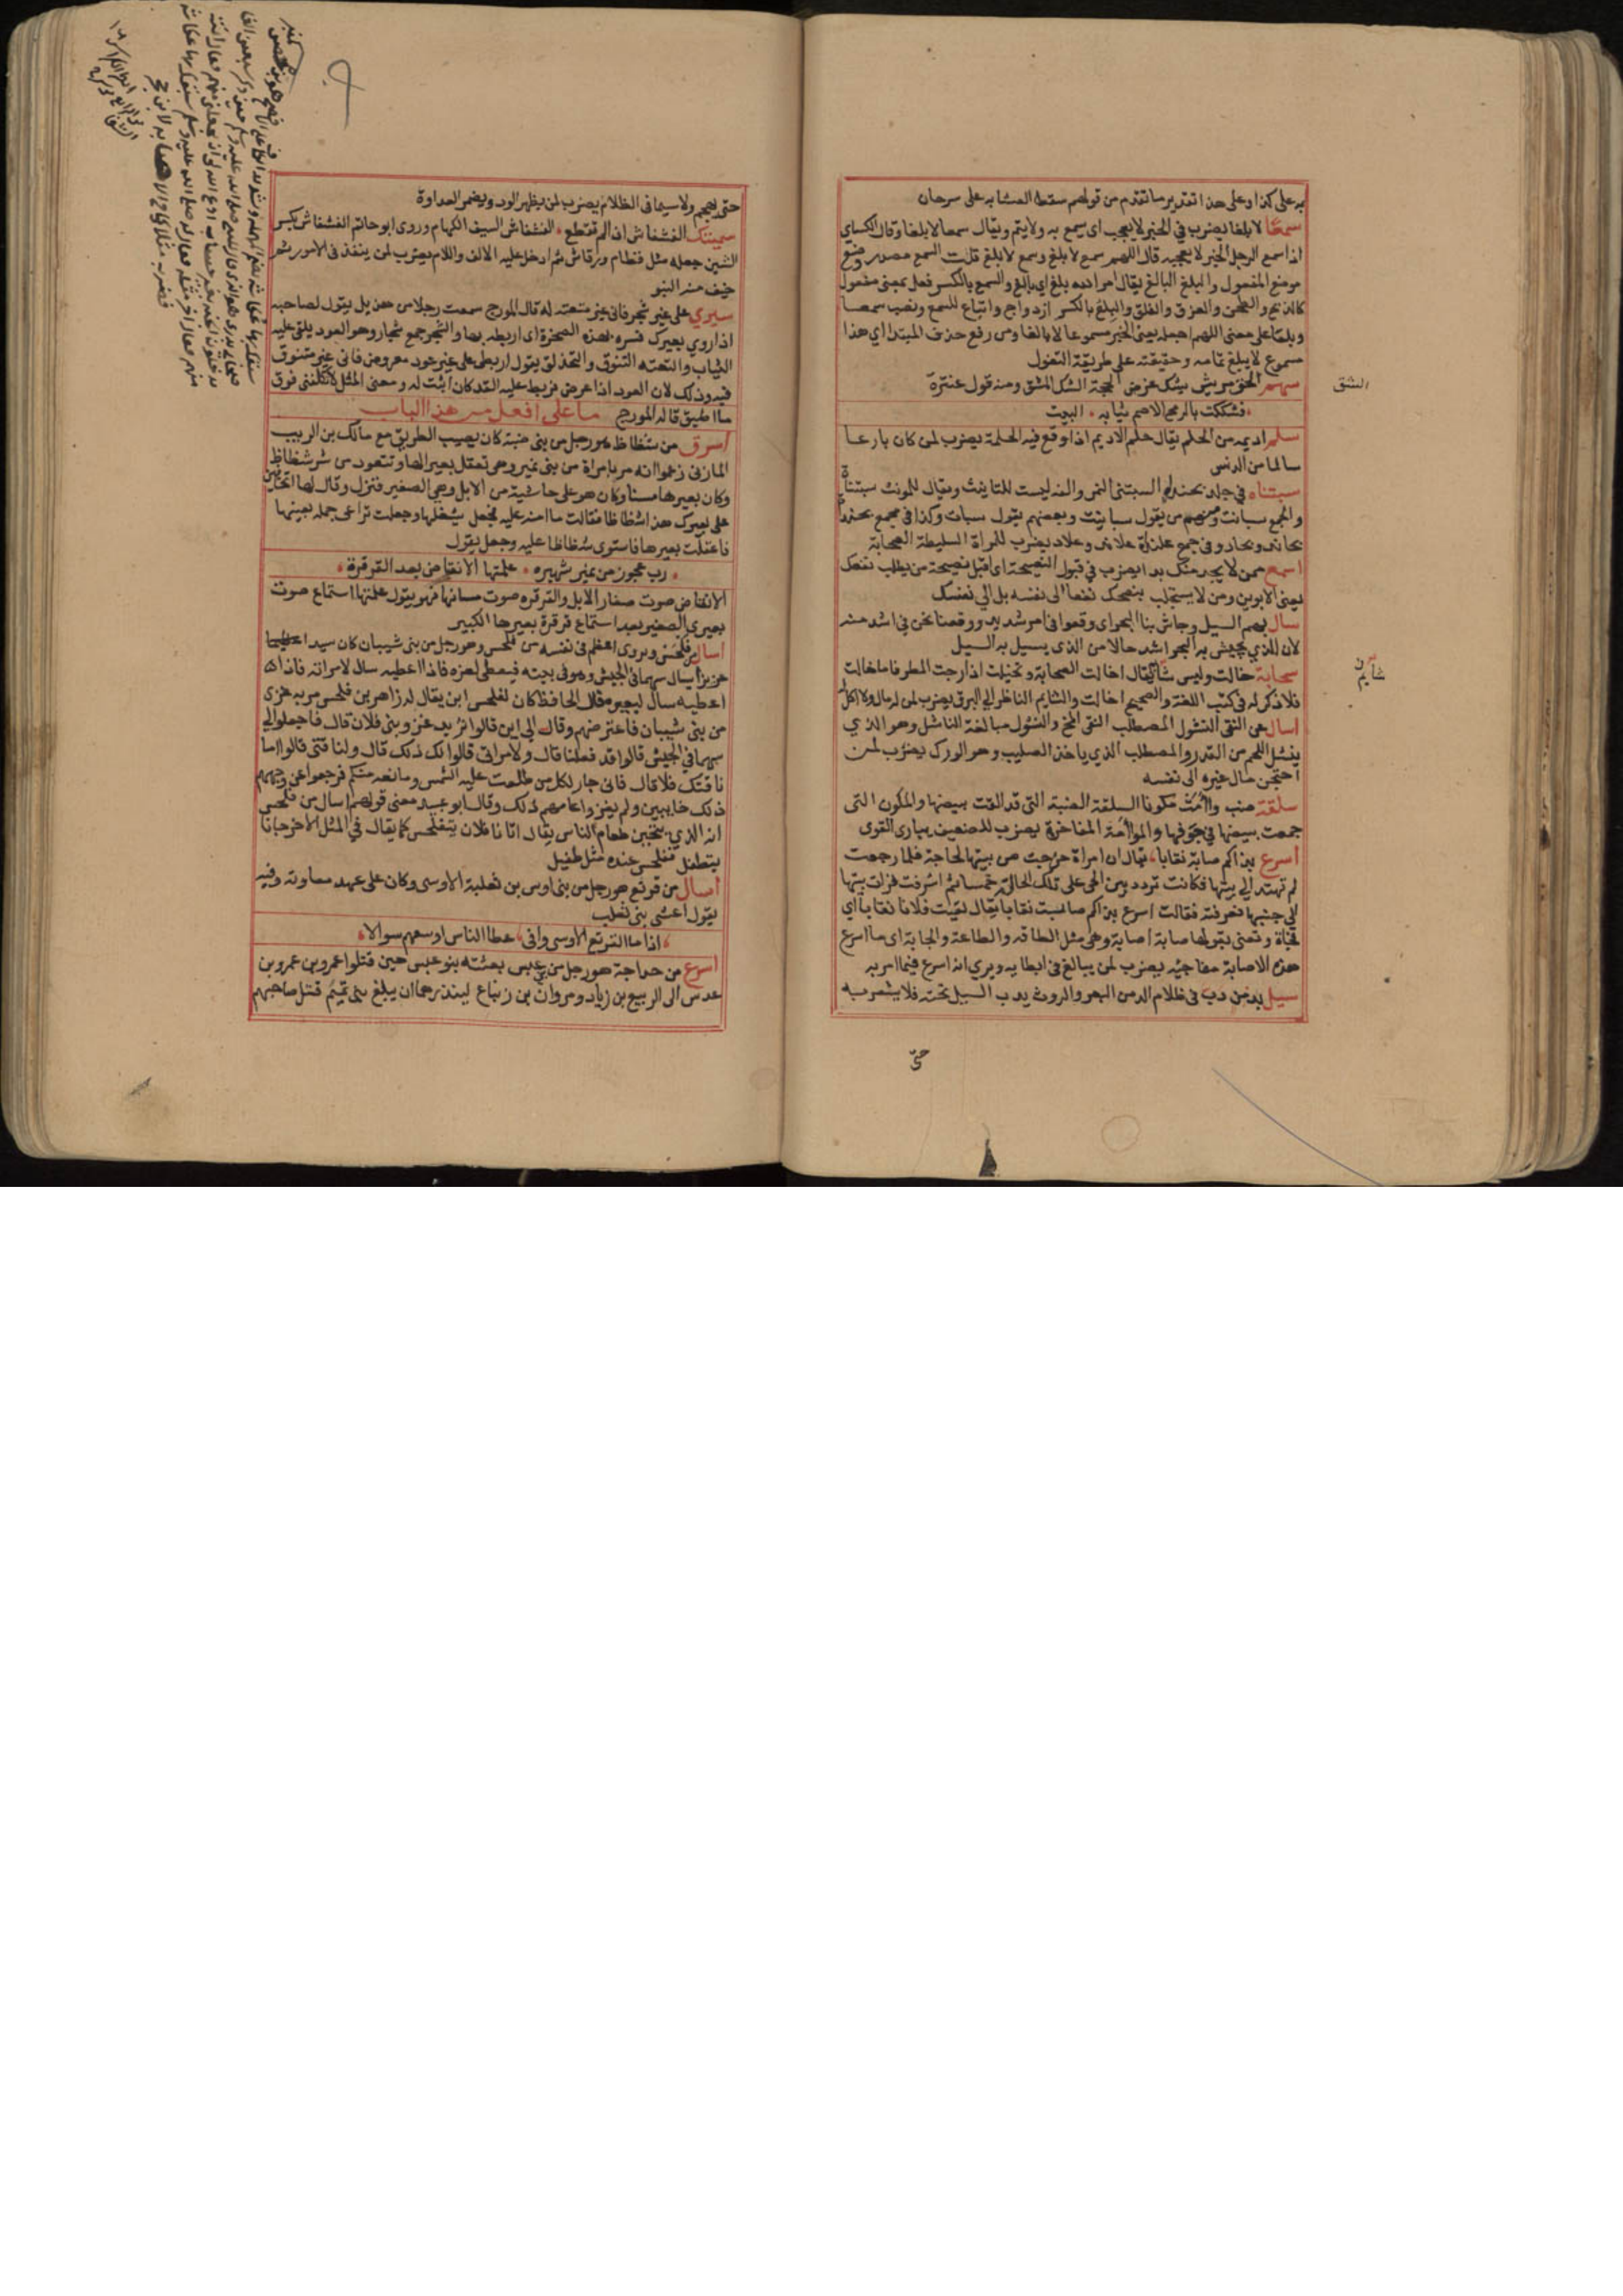 به على كذا وعلى هذا تقدير ما تقدم من قولهم سقط العشا به على سرحان
سمعًا لا بلغا يضرب في الخبر لا يعجب اى يسمع به ولا يتم ويقال سمعا لا بلغا وقال الكساي
اذا سمع الرجل الخبر لا يعجبه قال اللهم سمع لا بلغ وسمع لا بلغ قلت السمع مصدر وضع
موضع المفعول والبلغ البالغ يقال امر الله بلغ اي بالغ والسمع بالكسر فعل بمعنى مفعول
كالذبح والطحن والفرق والفلق والبلغ بالكسر ازدواج واتباع للسمع ونصب سمعا
وبلغا على معنى اللهم اجعله يعنى الخبر مسموعا لا بالغا ومن رفع حذف المبتدا اي هذا
مسموع لا يبلغ تمامه وحقيقته على طريقة التفول
سهم الحق مريش يشك غرض الحجة الشك الشق ومنه قول عنترة
فشككت بالرمح الاصم ثيابه البيت
سلم اديمه من الحلم يقال حلم الاديم اذا وقع فيه الحلمة يضرب لمن كان بارعا
سالما من الدنس
سبنتاه في جلد بخنداه السبنتى النمر والفه ليست للتانيث ويقال للمونث سبنتاة
والجمع سبانت ومنهم من يقول سبانيت وبعضهم يقول سبات وكذا في جمع بخنداة
بخاند وبخاد وفي جمع علنداة علاند وعلاد يضرب للمراة السليطة الصخابة
اسمع ممن لا يجد منك بدا يضرب في قبول النصيحة اى اقبل نصيحة من يطلب نفعك
يعنى الابوين ومن لا يستجلب بنصحك نفعا الى نفسه بل الي نفسك
سال بهم السيل وجاش بنا البحر اى وقعوا في امر شديد ووقعنا نحن في اشد منه
لان الذي يجيش به البحر اشد حالا من الذى يسيل به السيل
سحابة خالت وليس شائم يقال اخالت السحابة وتخيلت اذا رجت المطر فاما خالت
فلا ذكر له في كتب اللغة والصحيح اخالت والشايم الناظر الي البرق يضرب لمن له مال ولا اكل له
اسال عن النقى النشول المصطلب النقى المخ والنشول مبالغة الناشل وهو الذي
ينشل اللحم من القدر والمصطلب الذي ياخذ الصليب وهو الودك يضرب لمن
احتجن مال غيره الى نفسه
سلقة ضب وامت مكونا السلقة الضبة التى قد القت بيضها والمكون التى
جمعت بيضها في جوفها والموامة المفاخرة يضرب للضعيف يبارى القوى
اسرع بذاكم صابة نقابا يقال ان امراة خرجت من بيتها لحاجة فلما رجعت
لم تهتد الي بيتها فكانت تردد بين الحي على تلك الحالة خمسا ثم اشرفت فرات بيتها
الي جنبها فعرفته فقالت اسرع بذاكم صابة نقابا يقال لقيت فلانا نقابا اي
فجاة وتعنى بقولها صابة اصابة وهى مثل الطاقة والطاعة والجابة اى ما اسرع
هذه الاصابة مفاجئة يضرب لمن يبالغ في ابطايه ويري انه اسرع فيما امر به
سيل بدمن دب في ظلام الدمن البعر والروث يدب السيل تحته فلا يشعر به
حتى
الشق
شايم
حتى يهجم ولا سيما في الظلام يضرب لمن يظهر الود ويضمر العداوة
سميتك الفشفاش ان لم تقطع الفشفاش السيف الكهام وروى ابو حاتم الفشفاش بكسر
الشين جعله مثل قطام ورقاش ثم ادخل عليه الالف واللام يضرب لمن ينفذ في الامور ثم
خيف منه النبو
سيري على غير شجر فاني غير متعته له قال المورج سمعت رجلا من هذيل يقول لصاحبه
اذا روي بعيرك فسره بهذه الصخرة اى اربطه بها والشجر جمع شجار وهو العود يلقى عليه
الثياب والتعته التنوق والتحذلق يقول اربطى على غير عود معروض فاني غير متنوق
فيه وذلك لان العود اذا عرض فربط عليه القد كان اثبت له ومعنى المثل لا تكلفنى فوق
ما اطيق قاله المورج ما على افعل من هذا الباب
اسرق من شظاظ هو رجل من بنى ضبة كان يصيب الطريق مع مالك بن الريب
المازنى زعموا انه مر بامراة من بنى نمير وهى تعقل بعيرالها وتتعوذ من شر شظاظ
وكان بعيرها مسنا وكان هو على حاشية من الابل وهى الصغير فنزل وقال لها اتخافين
على بعيرك هذا شظاظا فقالت ما امنه عليه فجعل يشغلها وجعلت تراعى جمله بعينها
فاغفلت بعيرها فاستوى شظاظا عليه وجعل يقول
رب عجوز من نمير شهبره علمتها الانقاض بعد القرقرة
الانقاض صوت صغار الابل والقرقره صوت مسانها فهو يقول علمتها استماع صوت
بعيرى الصغير بعد استماع قرقرة بعيرها الكبير
اسال من فلحس ويروى اعظم في نفسه من فلحس وهو رجل من بنى شيبان كان سيدا
عزيزا يسال سهما في الجيش وهو في بيته فيعطى لعزه فاذا اعطيه سال لامراته فاذا
اعطيه سال لبعيره قال الجاحظ كان لفلحس ابن يقال له زاهر بن فلحس مر به غزى
من بنى شيبان فاعترضهم وقال الى اين قالوا نريد غزو بنى فلان قال فاجعلوا لي
سهما في الجيش قالوا قد فعلنا قال ولامراتى قالوا لك ذلك قال ولناقتى قالوا اما
ناقتك فلا قال فاني جار لكل من طلعت عليه الشمس ومانعه منكم فرجعوا عن وجههم
ذلك خايبين ولم يغزوا عامهم ذلك وقال ابو عبيد معنى قولهم اسال من فلحس
انه الذي يتحين طعام الناس يقال اتانا فلان يتفلحس كما يقال في المثل الاخر جانا
يتطفل ففلحس عنده مثل طفيل
اسال من قرثع هو رجل من بنى اوس بن ثعلبة الاوسى وكان على عهد معاوية وفيه
يقول اعشى بنى تغلب
اذا ما القرثع الاوسى وافى عطا الناس اوسعهم سوالا
اسرع من حداجة هو رجل من بنى عبس بعثته بنو عبس حين قتلوا عمرو بن عمرو بن
عدس الى الربيع بن زياد ومروان بن زنباع لينذرهما ان يبلغ بنى تميم قتل صاحبهم